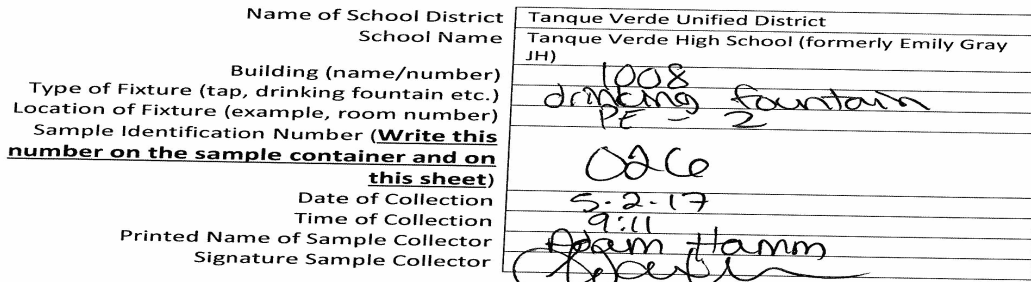 Name of School District Tanque Verde Unified District
School Name Tanque Verde High School (formerly Emily Gray
JH)
Building (name/number) 1008
Type of Fixture (tap, drinking fountain etc.) drinking fountain
Location of Fixture (example, room number) PE - 2
Sample Identification Number (Write this
number on the sample container and on
this sheet) 026
Date of Collection 5-2-17
Time of Collection 9:11
Printed Name of Sample Collector Adam Hamm
Signature Sample Collector